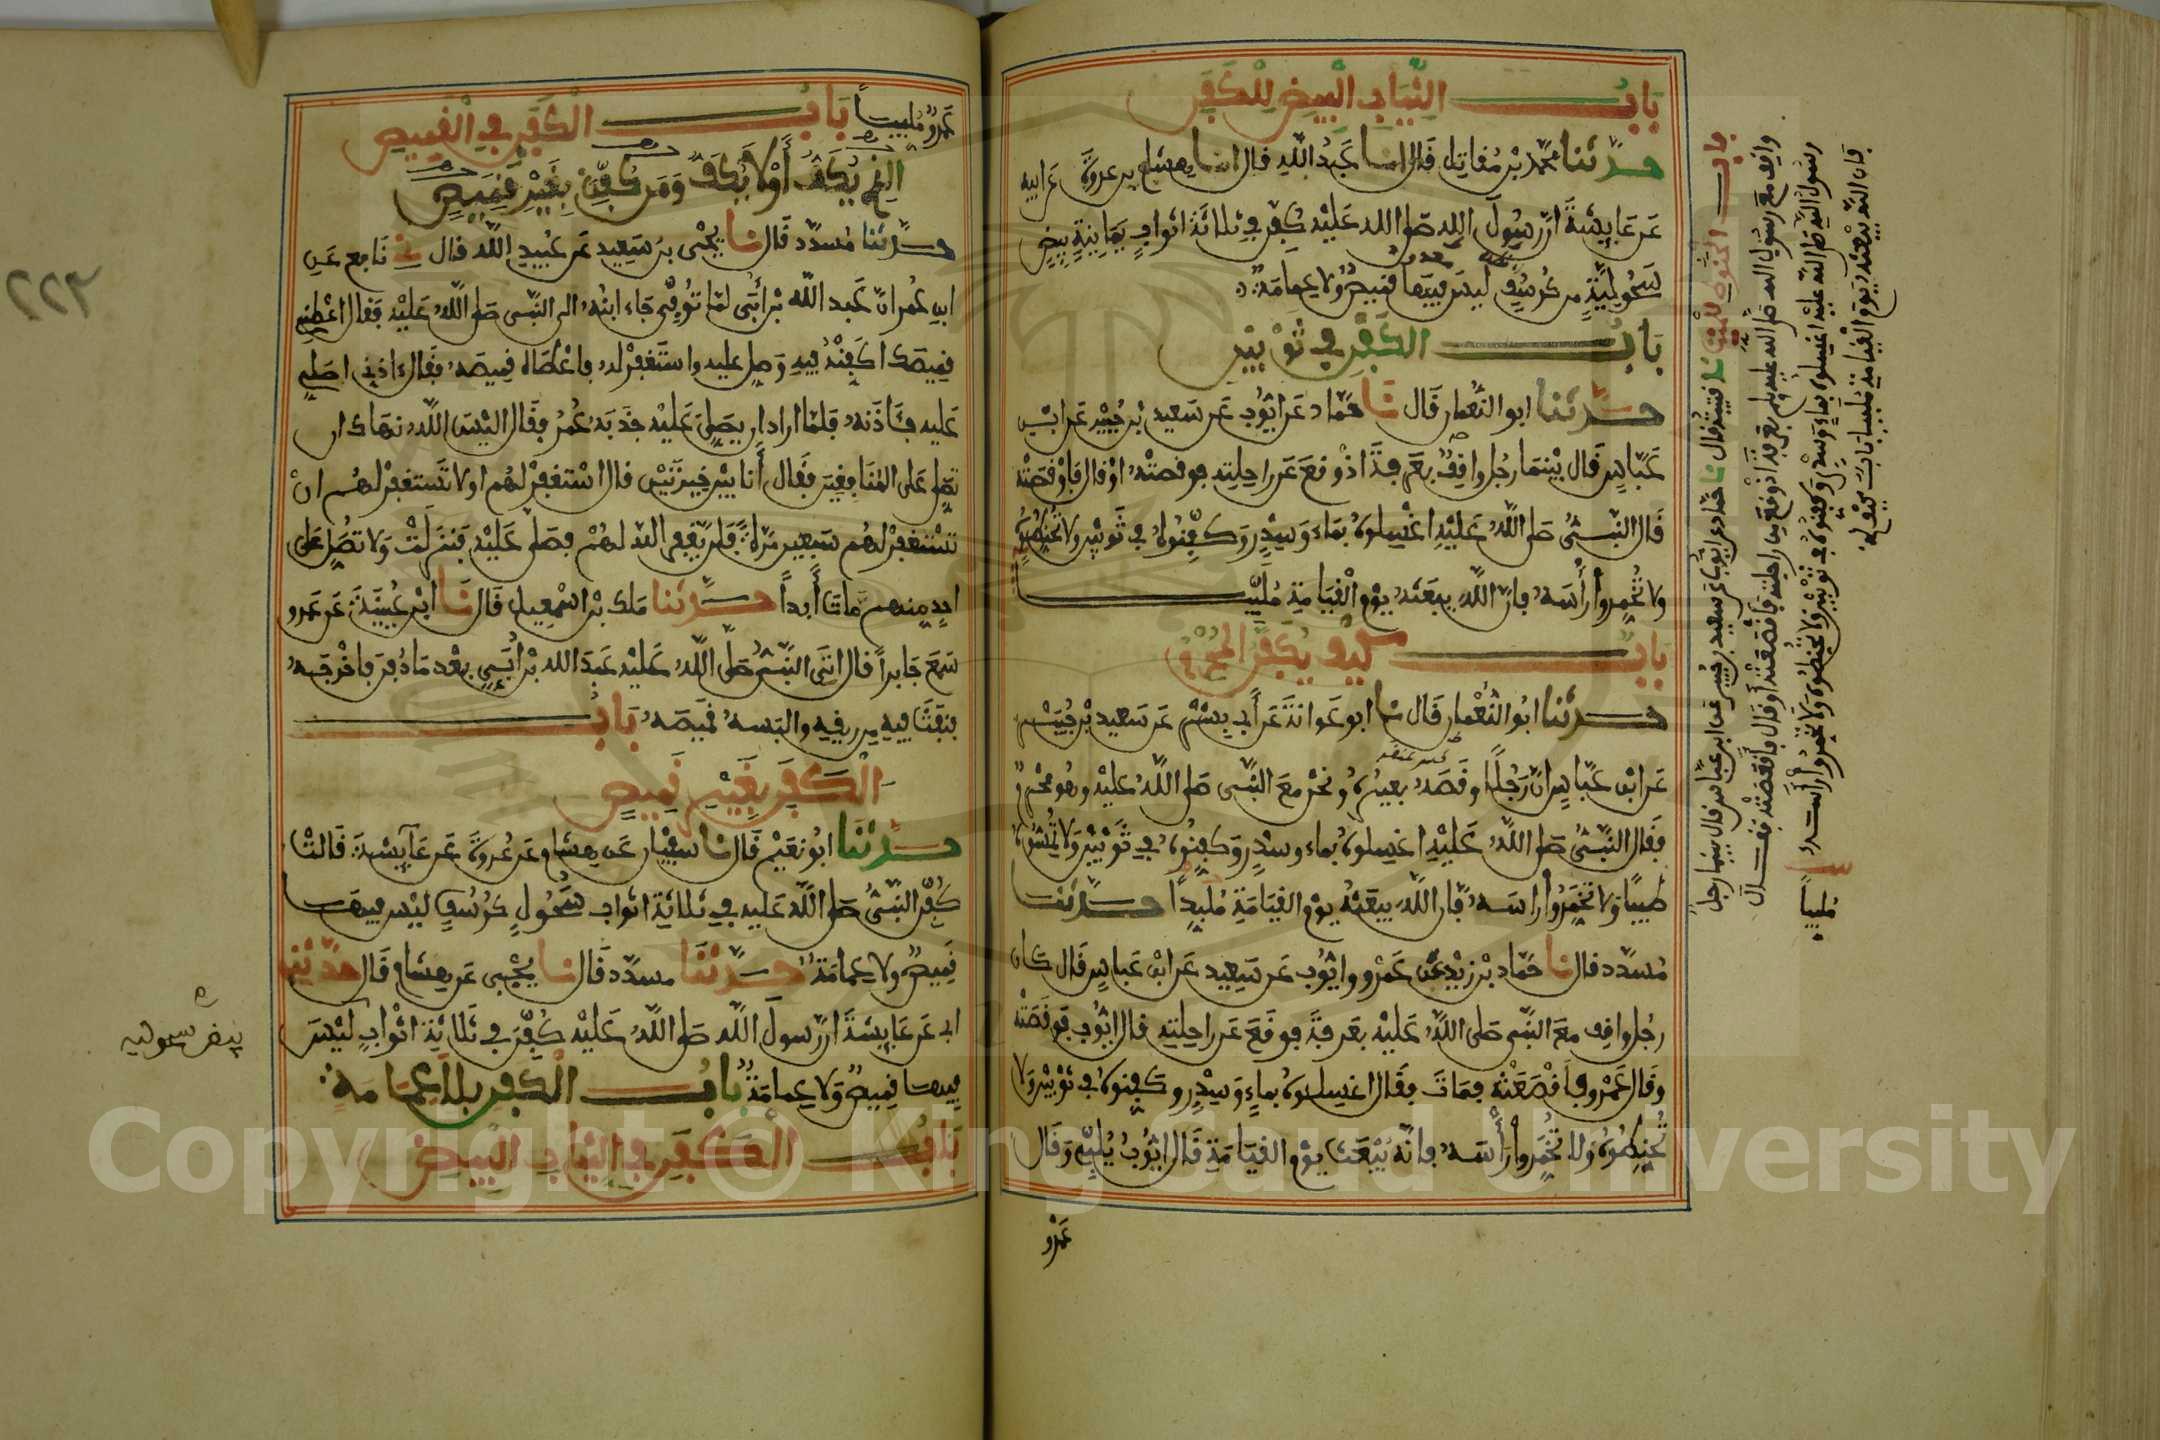 باب الثياب البيض للكفن
حدثنا محمد بن مقاتل قال انا عبد الله قال انا هشام بن عروة عن ابيه
عن عايشة ان رسول الله صلى الله عليه كفن في ثلاثة اثواب يمانية بيض
سحولية من كرسف ليس فيها قميص ولا عمامة
باب الكفن في ثوبين
حدثنا ابو النعمان قال نا حماد عن ايوب عن سعيد بن جبير عن ابن
عباس قال بينما رجل واقف بعرفة اذ وقع عن راحلته فوقصته او قال فاوقصته
قال النبي صلى الله عليه اغسلوه بماء وسدر وكفنوه في ثوبين ولا تحنطوه
ولا تخمروا رأسه فان الله يبعثه يوم القيامة ملبيا
باب كيف يكفن المحرم
حدثنا ابو النعمان قال نا ابو عوانة عن أبي بشر عن سعيد بن جبير
عن ابن عباس ان رجلا وقصه بعيره ونحن مع النبي صلى الله عليه وهو محرم
فقال النبي صلى الله عليه اغسلوه بماء وسدر وكفنوه في ثوبين ولا تمسوه
طيبا ولا تخمروا راسه فان الله يبعثه يوم القيامة ملبدا حدثنا
مسدد قال نا حماد بن زيد عن عمرو وايوب عن سعيد عن ابن عباس قال كان
رجل واقف مع النبي صلى الله عليه بعرفة فوقع عن راحلته قال ايوب فوقصته
وقال عمرو فاقصعته فمات فقال اغسلوه بماء وسدر وكفنوه في ثوبين ولا
تحنطوه ولا تخمروا رأسه فانه يبعث يوم القيامة قال ايوب يلبي وقال
عمرو
باب الحنوط للميت نا قتيبة قال نا حماد عن ايوب عن سعيد بن جبير عن ابن عباس قال بينما رجل
واقف مع رسول الله صلى الله عليه وسلم بعرفة اذ وقع من راحلته فأقصعته أو قال فأقعصته فقال
رسول الله صلى الله عليه اغسلوه بماء وسدر وكفنوه في ثوبين ولا تحنطوه ولا تخمروا رأسه
فان الله يبعثه يوم القيامة ملبيا
ملبيا
عمرو ملبيا باب الكفن في القميص
الذي يكف أو لا يكف ومن كفن بغير قميص
حدثنا مسدد قال نا يحيى بن سعيد عن عبيد الله قال ني نافع عن
ابن عمر ان عبد الله بن أبي لما توفي جاء ابنه الى النبي صلى الله عليه فقال اعطني
قميصك اكفنه فيه وصل عليه واستغفر له فاعطاه قميصه فقال اذني اصلي
عليه فاذنه فلما اراد ان يصلي عليه جذبه عمر فقال اليس الله نهاك ان
تصلي على المنافقين فقال أنا بين خيرتين قال استغفر لهم او لا تستغفر لهم ان
تستغفر لهم سبعين مرة فلن يغفر الله لهم فصلى عليه فنزلت ولا تصل على
احد منهم مات أبدا حدثنا ملك بن اسمعيل قال نا ابن عيينة عن عمرو
سمع جابرا قال اتى النبي صلى الله عليه عبد الله بن أبي بعد ما دفن فاخرجه
فنفث فيه من ريقه والبسه قميصه باب
الكفن بغير قميص
حدثنا ابو نعيم قال نا سفيان عن هشام عن عروة عن عايشة قالت
كفن النبي صلى الله عليه في ثلاثة اثواب سحول كرسف ليس فيها
قميص ولا عمامة حدثنا مسدد قال نا يحيى عن هشام قال حدثني
ابي عن عايشة ان رسول الله صلى الله عليه كفن في ثلاثة اثواب ليس
فيها قميص ولا عمامة باب الكفن بلا عمامة
باب الكفن في الثياب البيض
بيض سحولية
٢٢٣
Copyright © King Saud University